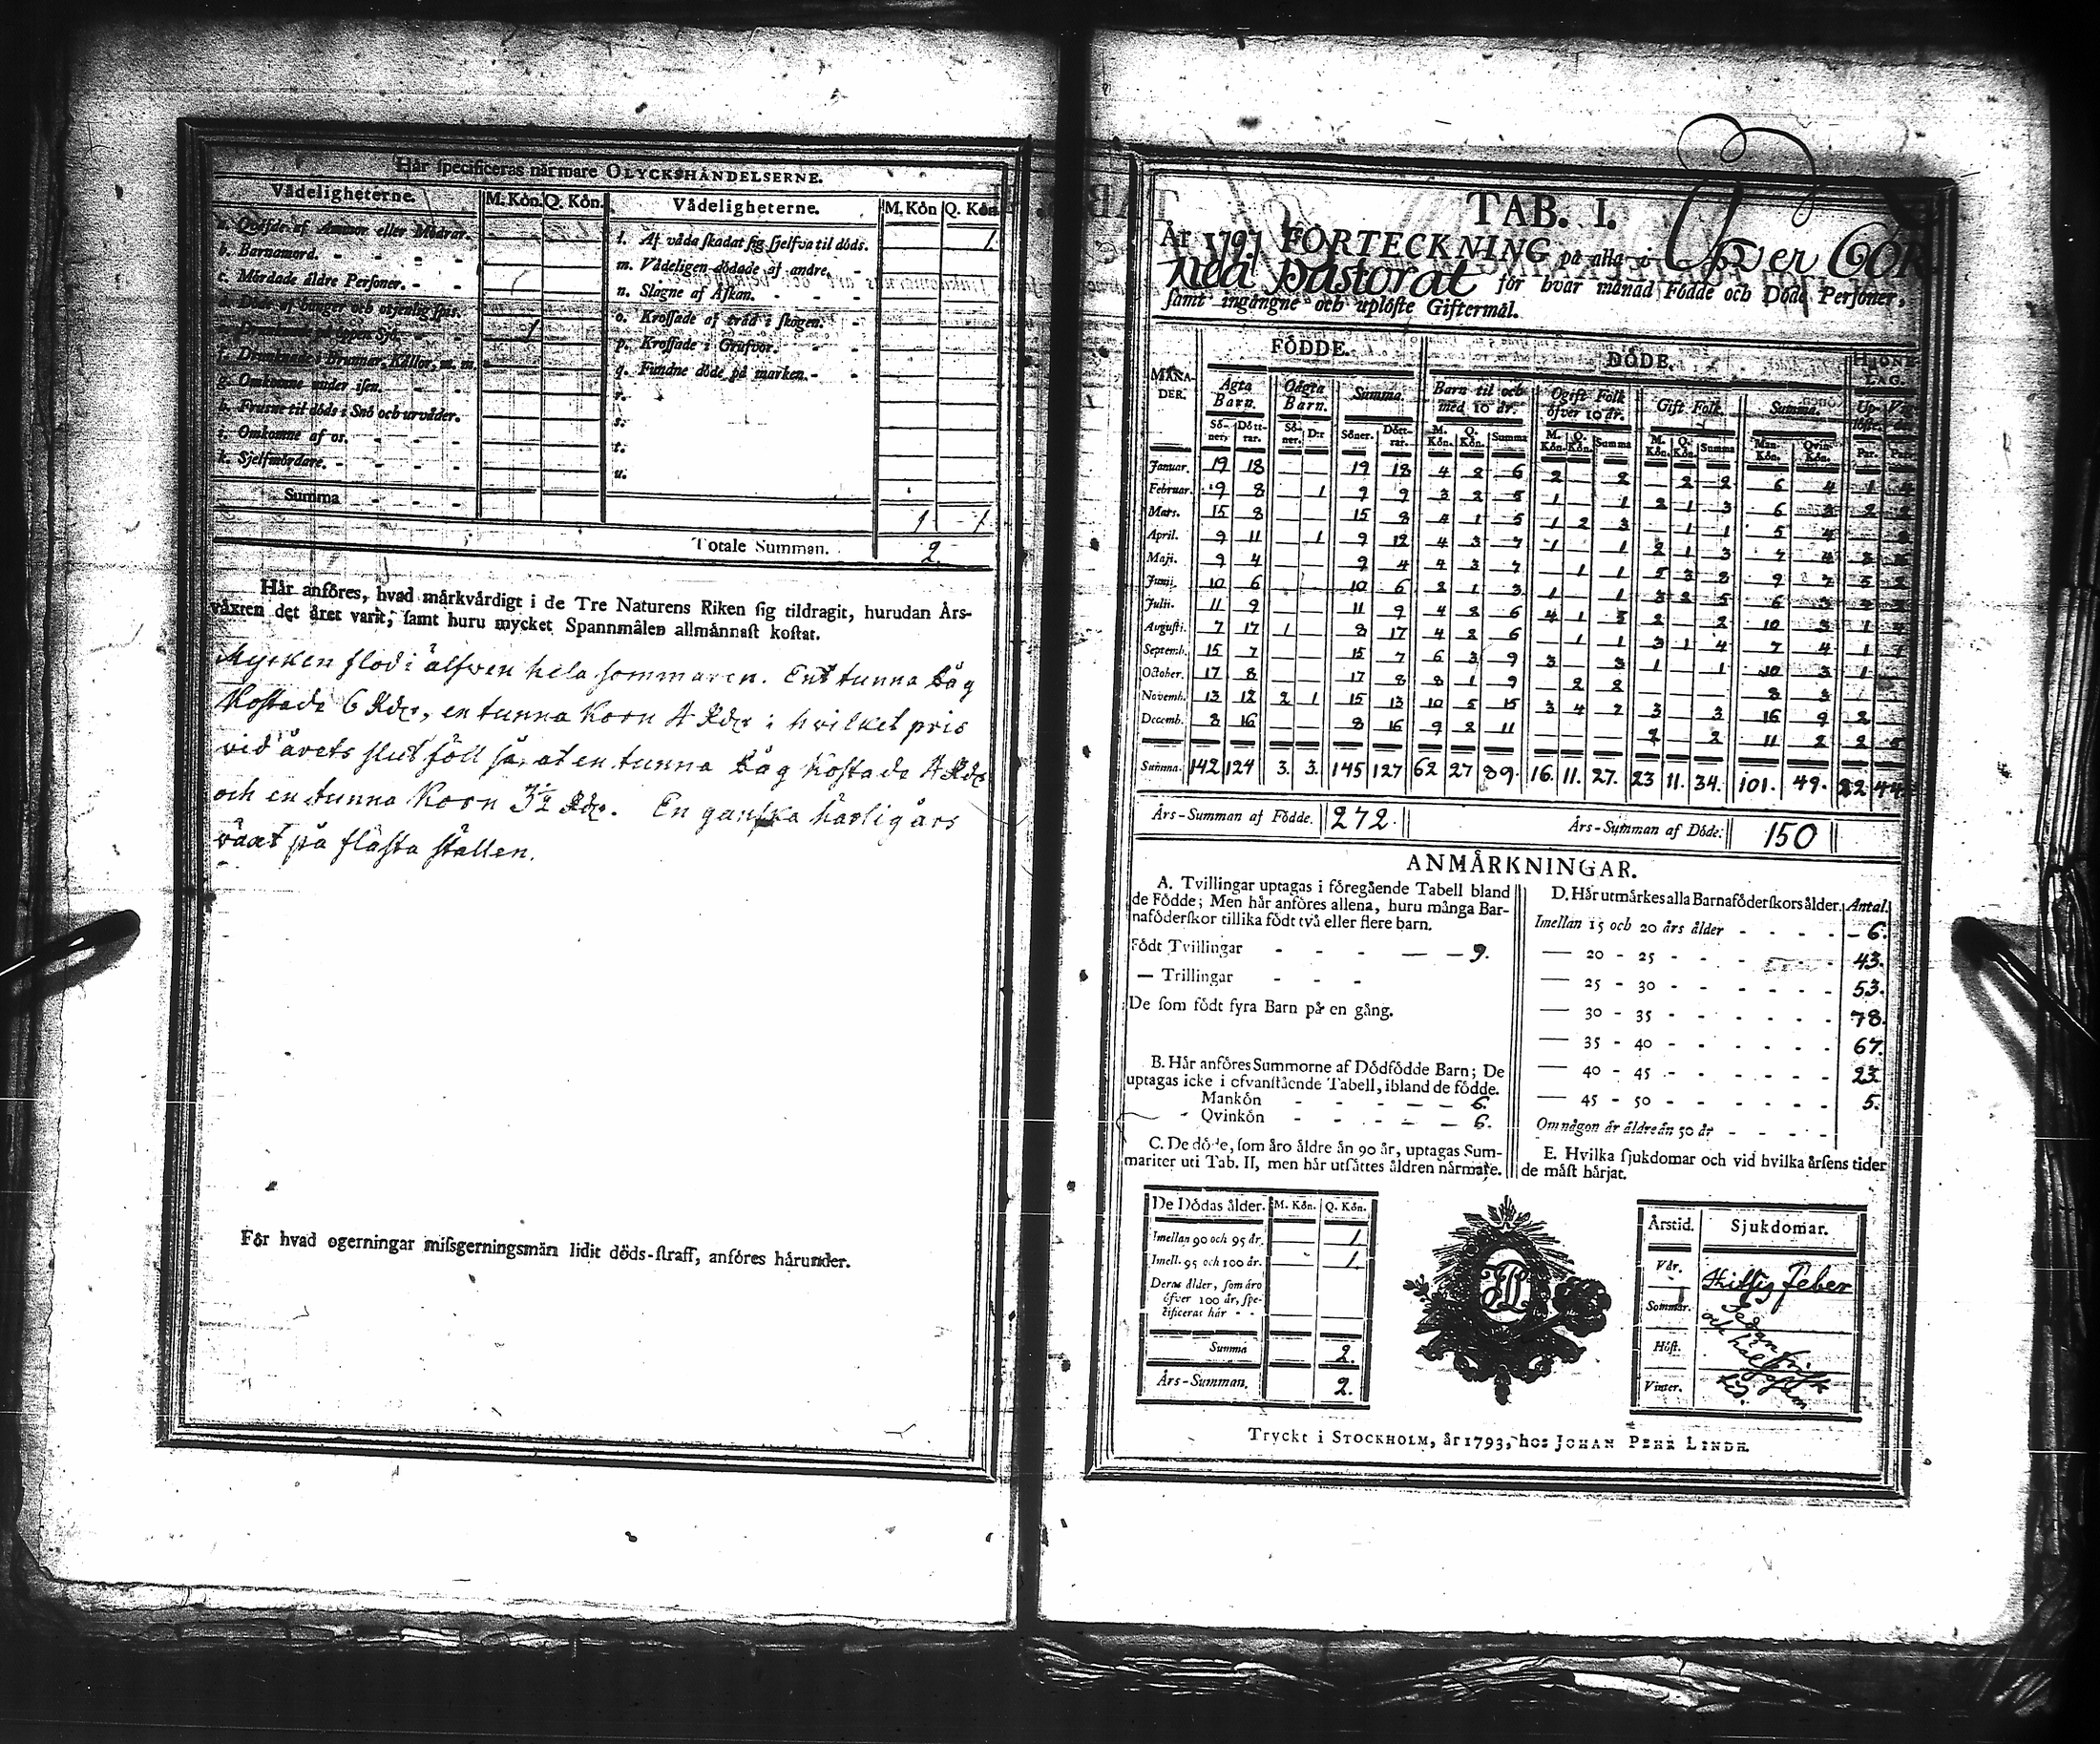 Här specificeras närmare OLYCKSHÄNDELSERNE.
Vådeligheterne. M. Kön. Q. Kön. Vådeligheterne. M. Kön Q. Kön.
a. Qväfde af Ammor eller Mödrar. l. Af våda skadat sig sjelfva til döds. 1.
b. Barnamord. m. Vådeligen dödade af andre.
c. Mördade äldre Personer. n. Slagne af Åskan.
d. Döde af hunger och otjenlig spis. o. Krossade af träd i skogen.
e. Drunknade på öppen Sjö. 1 p. Krossade i Grufvor.
f. Drunknade i Brunnar, Källor, m. m. q. Fundne döde på marken.
g. Omkomne under isen. r.
h. Frusne til döds i Snö och urväder. s.
i. Omkomne af os. t.
k. Sjelfmördare. u.
Summa 1 1
Totale Summan. 2.
Här anföres, hvad märkvärdigt i de Tre Naturens Riken sig tildragit, hurudan Års-
växten det året varit, samt huru mycket Spannmålen allmännast kostat.
Mycken flod i älfven hela sommaren. En tunna Råg
kostade 6 Rdr, en tunna Korn 4 Rdr; hvilket pris
vid årets slut föll så, at en tunna Råg kostade 4 Rdr
och en tunna Korn 3 1/2 Rdr. En ganska härlig års
växt på flästa ställen.
För hvad ogerningar missgerningsmän lidit döds-straff, anföres härunder.
TAB. I.
År 1797 FÖRTECKNING på alla i Öfver Tor
neå Pastorat för hvar månad Födde och Döde Personer,
samt ingångne och uplöste Giftermål.
FÖDDE. DÖDE. HJONE-LAG.
MÅNA-DER. Ägta Barn. Oägta Barn. Summa. Barn til och med 10 år. Ogift Folk öfver 10 år. Gift Folk. Summa.
Sö-ner. Dött-rar. Sö-ner. D:r Söner. Dött-rar. M. Kön. Q. Kön. Summa M. Kön. Q. Kön. Summa M. Kön. Q. Kön. Summa Man-Kön. Qvin-Kön. Par. Par.
Januar. 19 18 19 18 4 2 6 2 2 2 2 6 4 1
Februar. 9 8 1 9 9 3 2 5 1 1 2 1 3 6 2
Mars. 15 8 15 8 4 1 5 1 2 3 1 1 5 4
April. 9 11 1 9 12 4 3 7 1 1 2 1 3 7 4 3
Maji. 9 4 9 4 4 3 7 1 1 5 3 8 9 7 5 2
Junii. 10 6 10 6 2 1 3 1 1 3 2 5 6 3
Julii. 11 9 11 9 4 2 6 4 1 5 2 2 10 3 1
Augusti. 7 17 1 8 17 4 2 6 1 1 3 1 4 7 4 1 1
Septemb. 15 7 15 7 6 3 9 3 3 1 1 10 3 1
October. 17 8 17 8 8 1 9 2 2 8 3
Novemb. 13 12 2 1 15 13 10 5 15 3 4 7 3 3 16 9 2
Decemb. 8 16 8 16 9 2 11 2 2 11 2 2
Summa. 142 124 3. 3. 145 127 62 27 89. 16. 11. 27. 23 11. 34. 101. 49. 22 44
Års-Summan af Födde. 272. Års-Summan af Döde. 150
ANMÄRKNINGAR.
A. Tvillingar uptagas i föregående Tabell bland
de Födde; Men här anföres allena, huru många Bar-
naföderskor tillika födt två eller flere barn.
Födt Tvillingar 9.
— Trillingar
De som födt fyra Barn på en gång.
B. Här anföres Summorne af Dödfödde Barn; De
uptagas icke i ofvanstående Tabell, ibland de födde.
Mankön 6.
Qvinkön 6.
C. De döde, som äro äldre än 90 år, uptagas Sum-
mariter uti Tab. II, men här utsättes åldren närmare.
D. Här utmärkes alla Barnaföderskors ålder. Antal.
Imellan 15 och 20 års ålder 6.
— 20 - 25 43.
— 25 - 30 53.
— 30 - 35 78.
— 35 - 40 67.
— 40 - 45 23.
— 45 - 50 5.
Om någon är äldre än 50 år
E. Hvilka sjukdomar och vid hvilka årsens tider
de mäst härjat.
De Dödas ålder. M. Kön. Q. Kön.
Imellan 90 och 95 år. 1
Imell. 95 och 100 år. 1.
Deras ålder, som äro
öfver 100 år, spe-
cificeras här
Summa 2.
Års-Summan. 2.
Årstid. Sjukdomar.
Vår. Feber
Sommar.
Höst.
Vinter.
Tryckt i STOCKHOLM, år 1793, hos JOHAN PEHR LINDH.